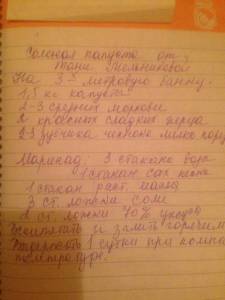 Соленая капуста от
Тани Мельниковой
На 3х метровую банку:
1,5 кг капусты
2-3 средних моркови
2 красных сладких перца
2-3 зубчика чеснока мелко пор
Маринад: 3 стакана воды
1 стакан сах песка
1 стакан раст. масла
3 ст. ложки соли
ст. ложки 70% уксуса
и залить горячим
1 сутки при комна
температуре.